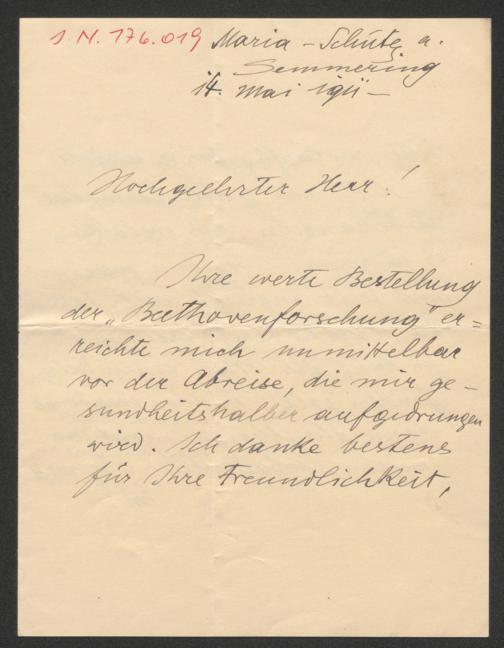 I. N. 176.019 Maria-Schutz a.
Semmering
14. Mai 1911 –
Hochgeehrter Herr!
Ihre werte Bestellung
der „Beethovenforschung" er=
reichte mich unmittelbar
vor der Abreise, die mir ge-
sundheitshalber aufgedrungen
wird. Ich danke bestens
für Ihre Freundlichkeit,